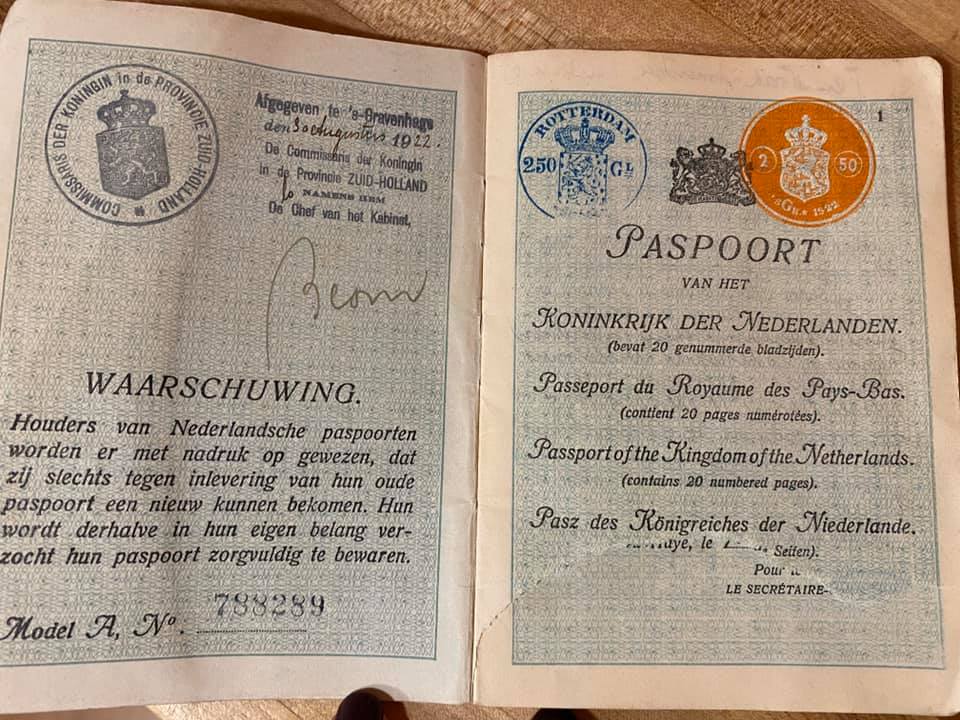 COMMISSARIS DER KONINGIN in de PROVINCIE ZUID-HOLLAND
Afgegeven te 's-Gravenhage
den 30 Augustus 1922.
De Commissaris der Koningin
in de Provincie ZUID-HOLLAND
NAMENS HEM
De Chef van het Kabinet,
WAARSCHUWING.
Houders van Nederlandsche paspoorten
worden er met nadruk op gewezen, dat
zij slechts tegen inlevering van hun oude
paspoort een nieuw kunnen bekomen. Hun
wordt derhalve in hun eigen belang ver-
zocht hun paspoort zorgvuldig te bewaren.
Model A, No. 788289
1
ROTTERDAM
250 GL
2 50
'sGR. 1922
PASPOORT
VAN HET
KONINKRIJK DER NEDERLANDEN.
(bevat 20 genummerde bladzijden).
Passeport du Royaume des Pays-Bas.
(contient 20 pages numérotées).
Passport of the Kingdom of the Netherlands.
(contains 20 numbered pages).
Pasz des Königreiches der Niederlande.
Haye, le
Seiten).
Pour
LE SECRÉTAIRE-